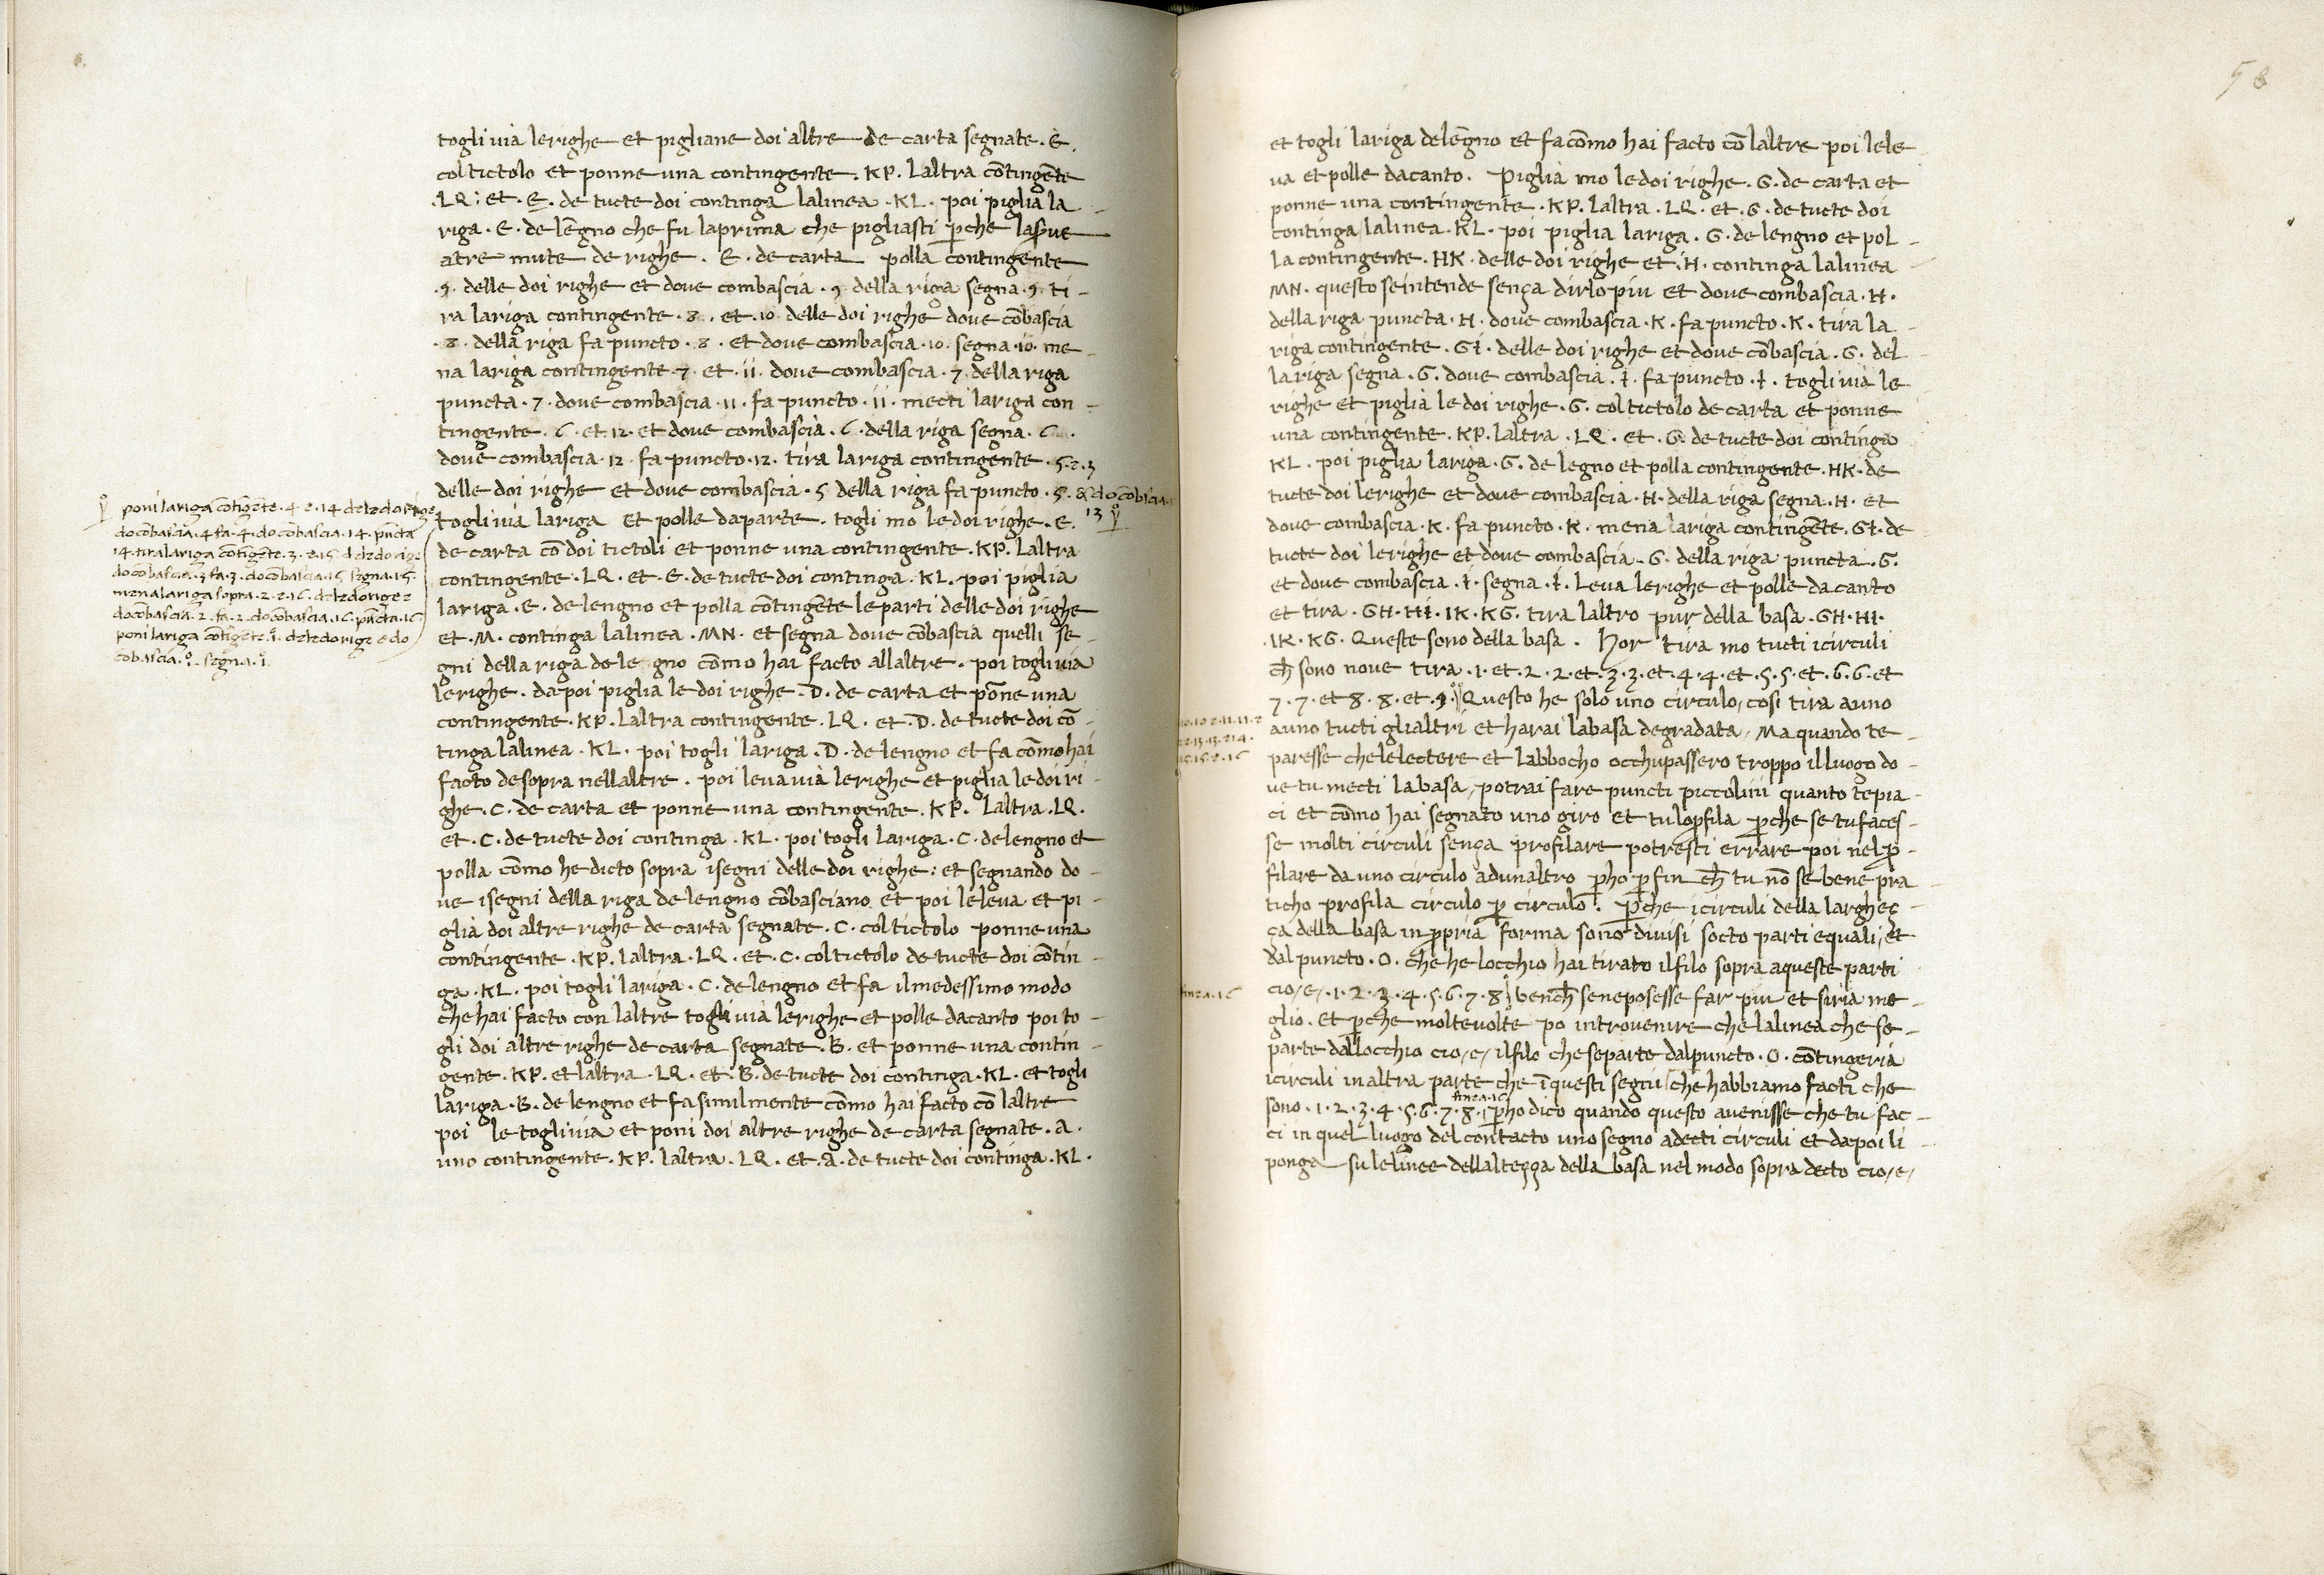 togli via lerighe et pigliane doi altre de carta segnate .E.
col tictolo et ponne una contingente .KP. laltra cōtingēte
.LQ. et .E. de tucte doi continga lalinea .KL. poi piglia la
riga .E. de lēgno che fu laprima che pigliasti p̄che la
atre mute de righe .E. de carta polla contingente
.9. delle doi righe et dove combascia .9. della riga segna .9. ti-
ra lariga contingente .8. et .10. delle doi righe dove cōbascia
.8. della riga fa puncto .8. et dove combascia .10. segna .10. me-
na lariga contingente .7. et .11. dove combascia .7. della riga
puncta .7. dove combascia .11. fa puncto .11. mecti lariga con-
tingente .6. et .12. et dove combascia .6. della riga segna .6.
dove combascia .12. fa puncto .12. tira lariga contingente .5.
delle doi righe et dove combascia .5. della riga fa puncto .5. & do cōbascia
13
togli via lariga et polle daparte. togli mo le doi righe .E.
de carta cō doi tictoli et ponne una contingente .KP. laltra
contingente .LQ. et .E. de tucte doi continga .KL. poi piglia
lariga .E. de lengno et polla cōtingēte le parti delle doi righe
et .M. continga lalinea .MN. et segna dove cōbascia quelli se-
gni della riga de le gno cōmo hai facto allaltre. poi togli via
lerighe. da poi piglia le doi righe .D. de carta et pōne una
contingente .KP. laltra contingente .LQ. et .D. de tucte doi cō-
tinga lalinea .KL. poi togli lariga .D. de lengno et fa cōmo hai
facto desopra nellaltre. poi leva via lerighe et piglia le doi ri-
ghe .C. de carta et ponne una contingente .KP. laltra .LQ.
et .C. de tucte doi continga .KL. poi togli lariga .C. de lengno et
polla cōmo he dicto sopra isegni delle doi righe: et segnando do-
ve isegni della riga de lengno cōbasciano et poi le leva et pi-
glia doi altre righe de carta segnate .C. col tictolo ponne una
contingente .KP. laltra .LQ. et .C. col tictolo de tucte doi cōtin-
ga .KL. poi togli lariga .C. de lengno et fa il medessimo modo
che hai facto con laltre togli via lerighe et polle dacanto poi to-
gli doi altre righe de carta segnate .B. et ponne una contin-
gente .KP. et laltra .LQ. et .B. de tucte doi continga .KL. et togli
lariga .B. de lengno et fa similmente cōmo hai facto cō laltre
poi le togli via et poni doi altre righe de carta segnate .A.
uno contingente .KP. laltra .LQ. et .A. de tucte doi continga .KL.
poni lariga cōtigēte .4. e .14. de le do rige
do cōbascia .4. fa .4. do cōbascia .14. pūcta
14. tira lariga cōtigēte .3. e .15. de le do rige
do cōbascia .3. fa .3. do cōbascia .15. segna .15.
mena lariga sopra .2. e .16. de le do rige e
do cōbascia .2. fa .2. do cōbascia .16. pūcta .16
poni lariga cōtigēte .1. de le do rige e do
cōbascia .1. segna .1.
58
et togli lariga de lēgno et fa cōmo hai facto cō laltre poi le le
va et polle dacanto. Piglia mo le doi righe .G. de carta et
ponne una contingente .KP. laltra .LQ. et .G. de tucte doi
continga lalinea .KL. poi piglia lariga .G. de lengno et pol-
la contingente .HK. delle doi righe et .H. continga lalinea
MN. questo se intende sença dirlo piu et dove combascia .H.
della riga puncta .H. dove combascia .K. fa puncto .K. tira la
riga contingente .GI. delle doi righe et dove cōbascia .G. del
la riga segna .G. dove combascia .I. fa puncto .I. togli via le
righe et piglia le doi righe .G. col tictolo de carta et ponne
una contingente .KP. laltra .LQ. et .G. de tucte doi continga
KL. poi piglia lariga .G. de legno et polla contingente .HK. de
tucte doi lerighe et dove combascia .H. della riga segna .H. et
dove combascia .K. fa puncto .K. mena lariga contingēte .GI. de
tucte doi lerighe et dove combascia .G. della riga puncta .G.
et dove combascia .I. segna .I. Leva lerighe et polle da canto
et tira .GH. HI. IK. KG. tira laltro pur della basa .GH. HI.
.IK. KG. Queste sono della basa. Hor tira mo tucti icirculi
ch̄ sono nove tira .1. et .2. 2. et .3. 3. et .4. 4. et .5. 5. et .6. 6. et
7. 7. et 8. 8. et .9. Questo he solo uno circulo, cosi tira auno
auno tucti glialtri et harai labasa degradata, Ma quando te-
paresse che le lectere et labbocho occhupassero troppo illuogo do-
ve tu mecti labasa, potrai fare puncti piccolini quanto te pia-
ci et cōmo hai segnato uno giro et tu lop̄fila p̄che se tu faces-
se molti circuli sença profilare potresti errare poi nel p̄-
filare da uno circulo adunaltro p̄ho p̄ fin ch̄ tu nō se bene pra
ticho profila circulo p̄ circulo. P̄che icirculi della largheç-
ça della basa in p̄pria forma sono divisi socto parti equali, et
dal puncto .O. che he locchio hai tirato il filo sopra aqueste parti
cio, e, .1. 2. 3. 4. 5. 6. 7. 8. bench̄ sene posesse far piu et siria me-
glio. et p̄che molte volte po intravenire che lalinea che se-
parte dallocchio cio, e, il filo che separte dal puncto .O. cōtingeria
icirculi in altra parte che ī questi segni che habbiamo facti che
fine a .16
sono .1. 2. 3. 4. 5. 6. 7. 8. p̄ho dico quando questo avenisse che tu fac-
ci in quel luogo del contacto uno segno adecti circuli et dapoi li
ponga su le linee dellalteçça della basa nel modo sopra decto cio, e,
fine a .16